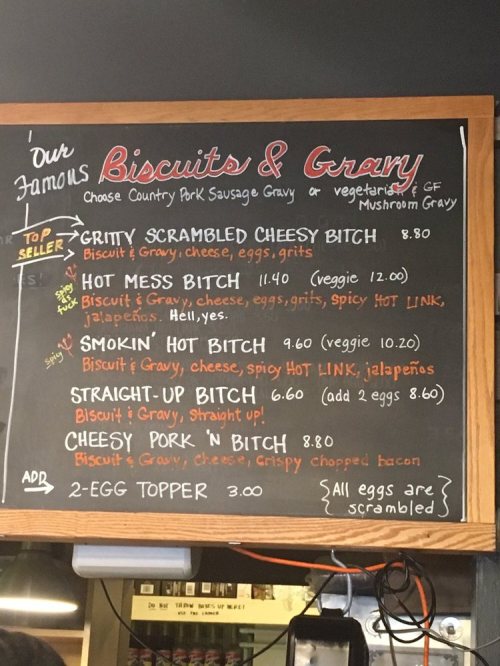 Our Famous Biscuits & Gravy
Choose Country Pork Sausage Gravy or vegetarian & GF
Mushroom Gravy
TOP SELLER → GRITTY SCRAMBLED CHEESY BITCH 8.80
Biscuit & Gravy, cheese, eggs, grits
HOT MESS BITCH 11.40 (veggie 12.00)
spicy as fuck Biscuit & Gravy, cheese, eggs, grits, spicy HOT LINK,
jalapeños. Hell, yes.
spicy SMOKIN' HOT BITCH 9.60 (veggie 10.20)
Biscuit & Gravy, cheese, spicy HOT LINK, jalapeños
STRAIGHT-UP BITCH 6.60 (add 2 eggs 8.60)
Biscuit & Gravy, Straight up!
CHEESY PORK 'N BITCH 8.80
Biscuit & Gravy, cheese, crispy chopped bacon
ADD → 2-EGG TOPPER 3.00 {All eggs are scrambled}
DO NOT THROW